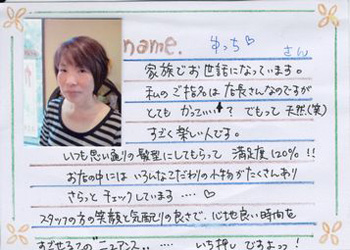 name. ゆっち♡ さん
家族でお世話になっています。
私のご指名は店長さんなのですが
とても かってぃー? でもって 天然(笑)
すごく楽しい人です。
いつも思い通りの髪型にしてもらって 満足度120%!!
お店の中には いろんなこだわりの小物がたくさんあり
さらっと チェックしています‥‥♡
スタッフの方の笑顔と気配りの良さで、心地も良い時間を
すごせるこの"ニュアンス.. …いち押しですよっ!